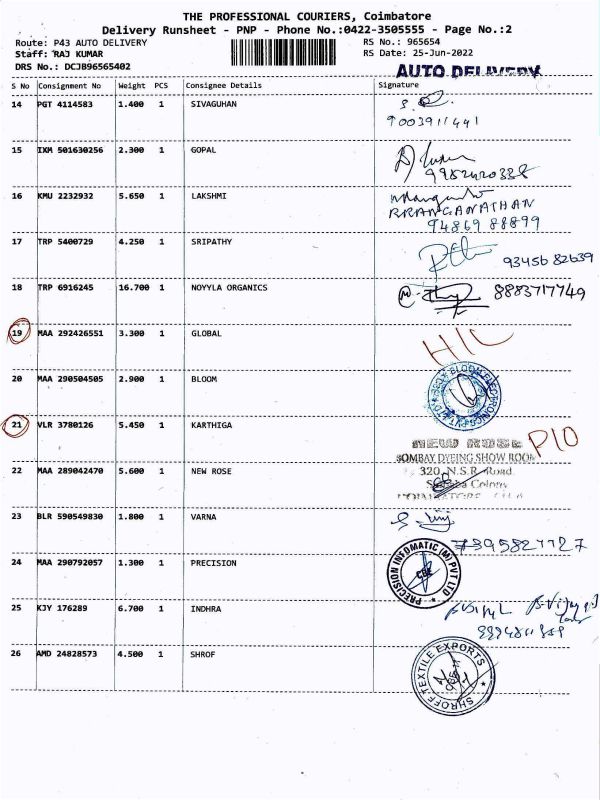 THE PROFESSIONAL COURIERS, Coimbatore
Delivery Runsheet - PNP - Phone No.:0422-3505555 - Page No.:2
Route: P43 AUTO DELIVERY RS No.: 965654
Staff: RAJ KUMAR RS Date: 25-Jun-2022
DRS No.: DCJB96565402
AUTO DELIVERY
S No Consignment No Weight PCS Consignee Details Signature
14 PGT 4114583 1.400 1 SIVAGUHAN
9003911441
15 IXM 501630256 2.300 1 GOPAL
16 KMU 2232932 5.650 1 LAKSHMI
RRANGANATHAN
94869 88899
17 TRP 5400729 4.250 1 SRIPATHY
93456 82639
18 TRP 6916245 16.700 1 NOYYLA ORGANICS
8883717749
19 MAA 292426551 3.300 1 GLOBAL
20 MAA 290504505 2.900 1 BLOOM
21 VLR 3780126 5.450 1 KARTHIGA
P10
NEW ROSE
BOMBAY DYEING SHOW ROOM
320, N.S.R. Road,
22 MAA 289042470 5.600 1 NEW ROSE
23 BLR 590549830 1.800 1 VARNA
24 MAA 290792057 1.300 1 PRECISION
PRECISION INFOMATIC (M) PVT LTD
CBE
25 KJY 176289 6.700 1 INDHRA
26 AMD 24828573 4.500 1 SHROF
SHROFF TEXTILE EXPORTS